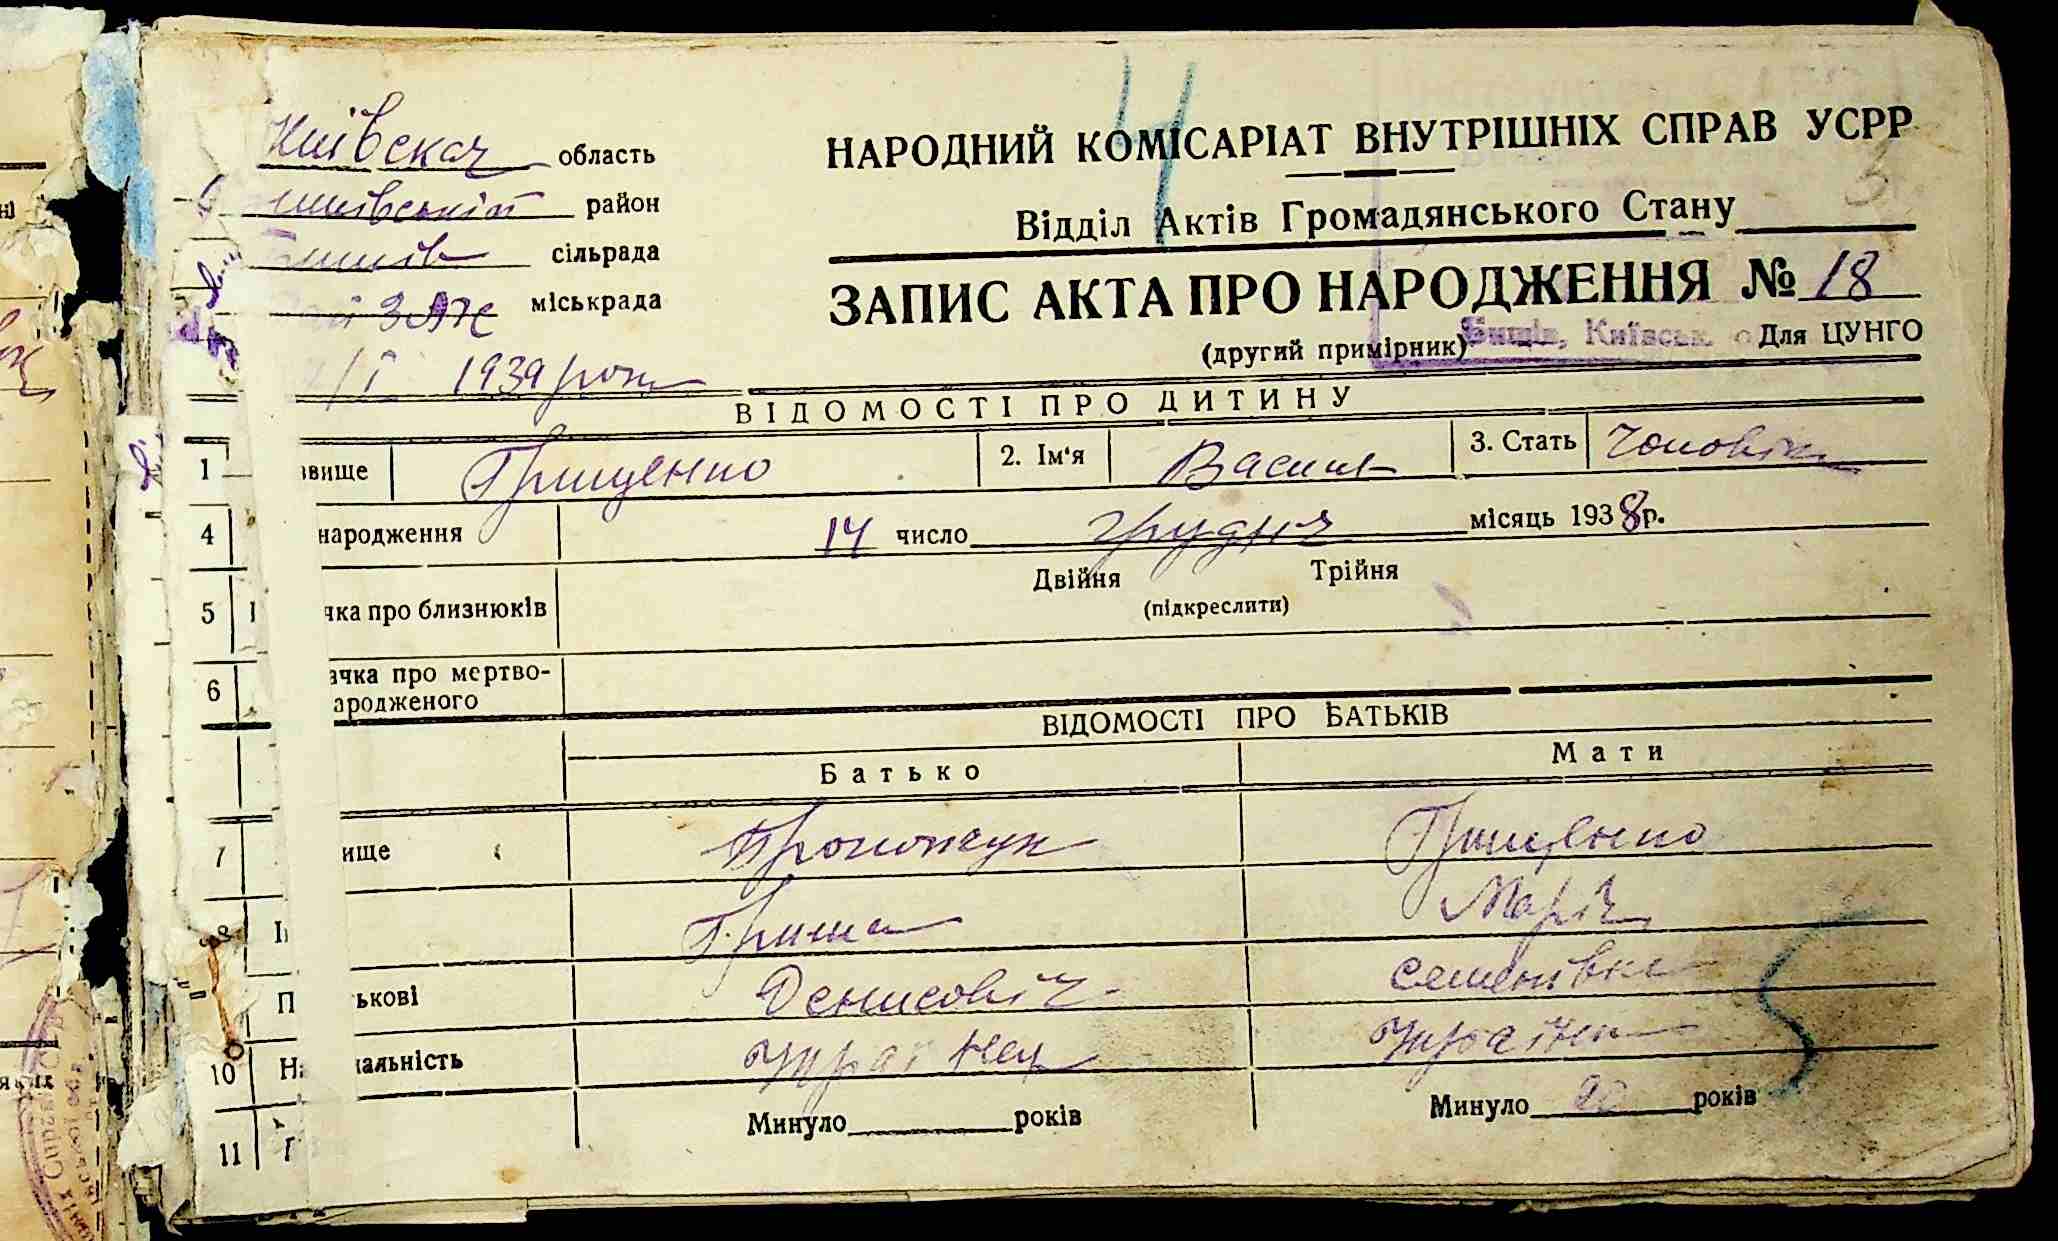 Київская область
район
сільрада
міськрада
1939 року
НАРОДНИЙ КОМІСАРІАТ ВНУТРІШНІХ СПРАВ УСРР
Відділ Актів Громадянського Стану
ЗАПИС АКТА ПРО НАРОДЖЕННЯ № 18
(другий примірник) Бишів, Київськ. Для ЦУНГО
ВІДОМОСТІ ПРО ДИТИНУ
1 звище Грищенко 2. Ім'я Василь 3. Стать Чоловіч
4 народження 14 число грудня місяць 1938 р.
Двійня Трійня
5 чка про близнюків (підкреслити)
6 ачка про мертво-
ародженого
ВІДОМОСТІ ПРО БАТЬКІВ
Батько Мати
7 ище Прокопчук Грищенко
8 Гриша Марія
ькові Денисовіч Семенівна
10 На альність Українец Українка
11 Минуло років Минуло 20 років